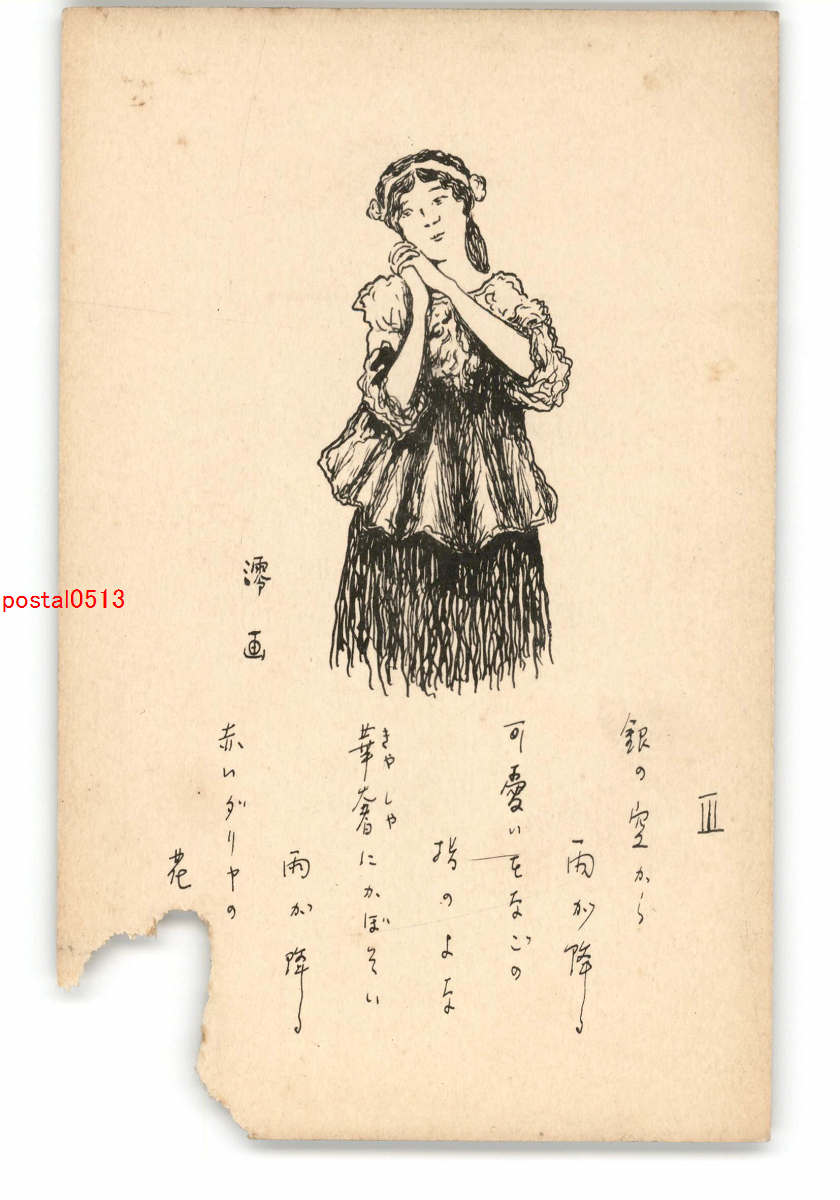 III
銀の空から
雨が降る
可愛いをなごの
指のよな
きやしや
華奢にかぼそい
雨が降る
赤いダリヤの
花
澪画
postal0513